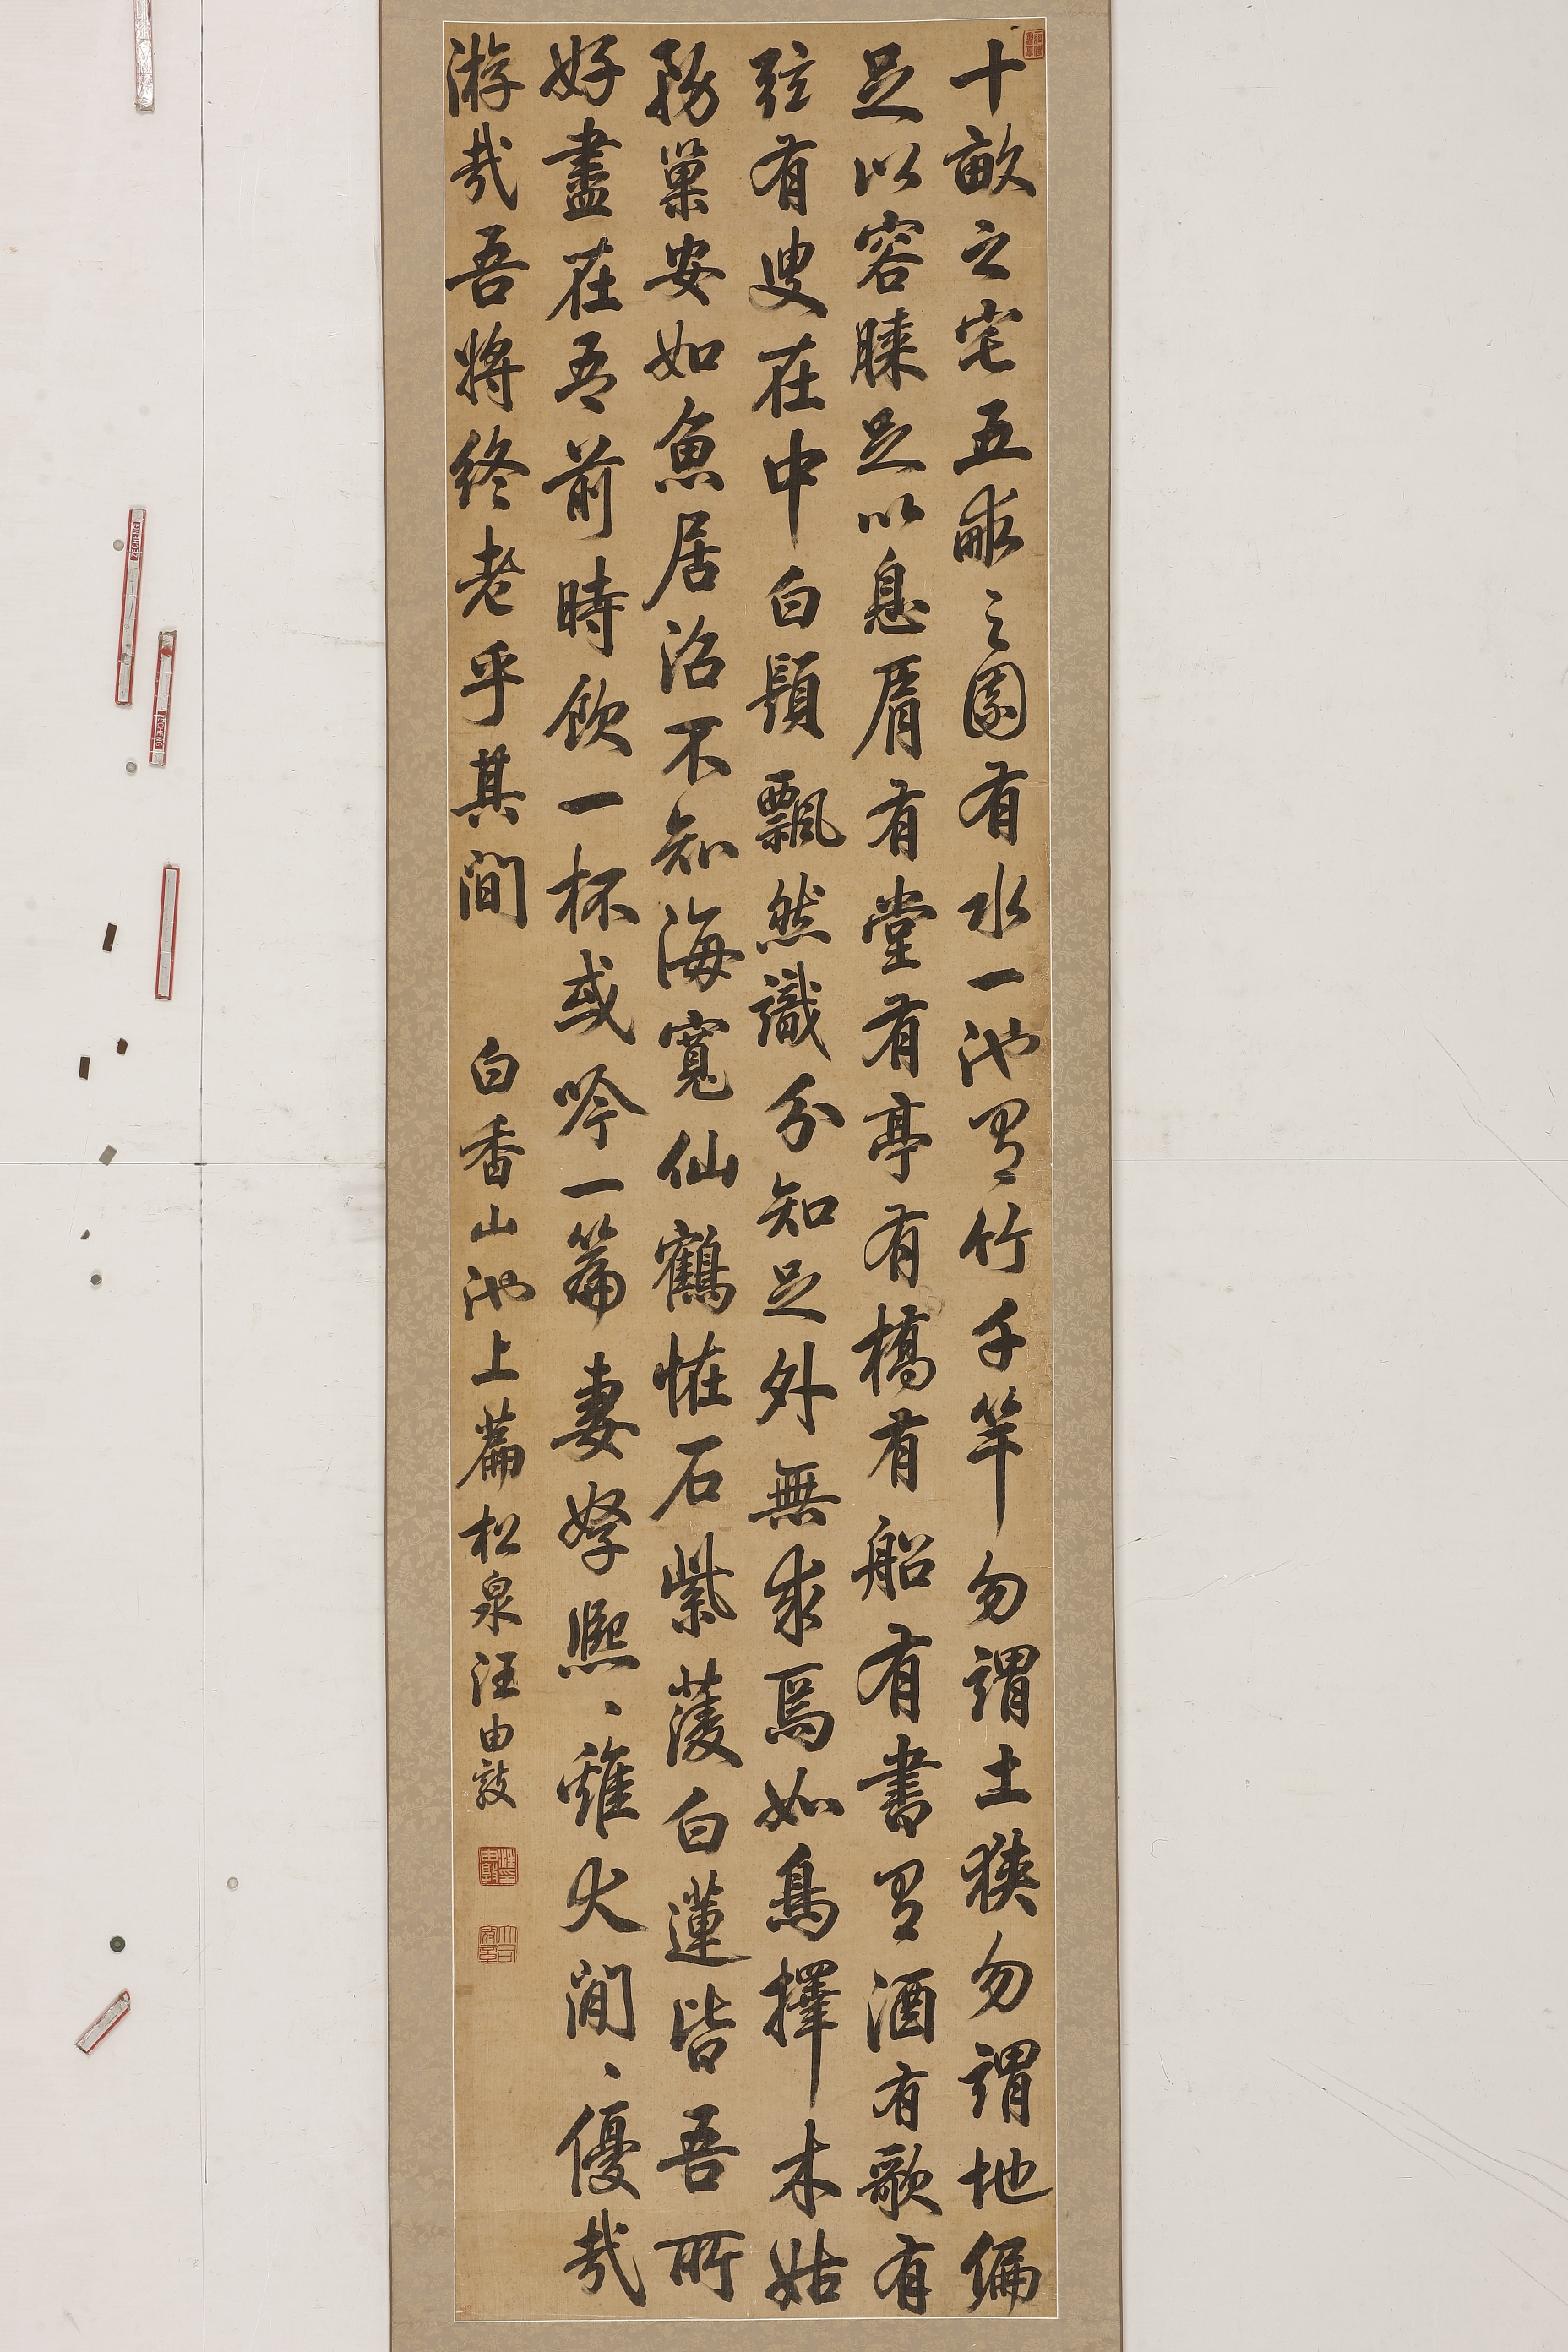 十畝之宅五畝之園有水一池有竹千竿勿謂土狹勿謂地偏
足以容膝足以息肩有堂有亭有橋有船有書有酒有歌有
弦有叟在中白鬚飄然識分知足外無求焉如鳥擇木姑
務巢安如魚居沼不知海寬仙鶴恠石紫蔆白蓮皆吾所
好盡在吾前時飲一杯或吟一篇妻孥熙、雞犬閒、優哉
游哉吾將終老乎其間 白香山池上篇松泉汪由敦
汪由敦印
ZECHENG
ZECHENG